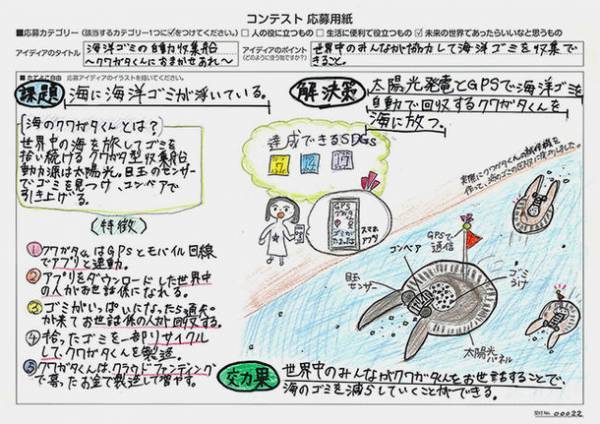 コンテスト 応募用紙
■応募カテゴリー(該当するカテゴリー1つに☑をつけてください。) □ 人の役に立つもの □ 生活に便利で役立つもの ☑ 未来の世界であったらいいなと思うもの
アイディアのタイトル
海洋ゴミの自動収集船
〜クワガタくんにおまかせあれ〜
アイディアのポイント
(どのように世の中で役立つか?)
世界中のみんなが協力して海洋ゴミを収集で
きること。
課題
海に海洋ゴミが浮いている。
解決策
太陽光発電とGPSで海洋ゴミを
自動で回収するクワガタくんを
海に放つ。
海のクワガタくんとは?
世界中の海を旅してゴミを
拾い続けるクワガタ型収集船
動力源は太陽光。目玉のセンサー
でゴミを見つけ、コンベアで
引き上げる。
(特徴)
① クワガタくんはGPSとモバイル回線
でアプリと連動。
② アプリをダウンロードした世界中
の人がお世話係になれる。
③ ゴミがいっぱいになったら通知
が来てお世話係の人が回収する。
④ 拾ったゴミを一部リサイクル
して、クワガタくんを製造。
⑤ クワガタくんは、クラウドファンディング
で募ったお金で製造して増やす。
達成できるSDGs
7
14
17
スマホ
アプリ
GPSで
通信
コンベア
目玉
センサー
ゴミ
うけ
太陽光
パネル
効果
世界中のみんながクワガタくんをお世話することで、
海のゴミを減らしていくことができる。
00022